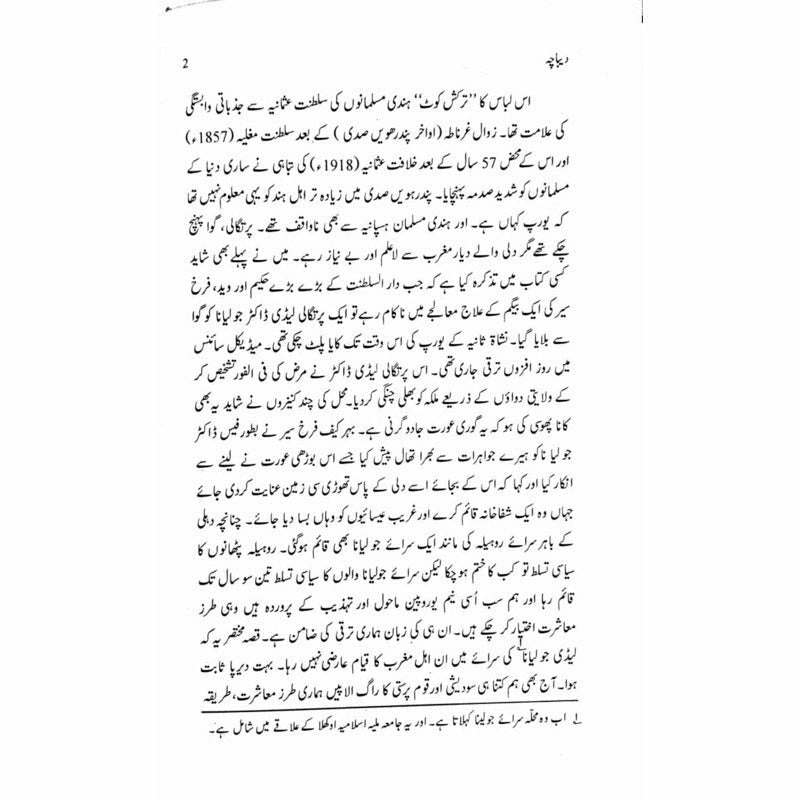 دیباچہ
2
اس لباس کا ’’ترکش کوٹ‘‘ ہندی مسلمانوں کی سلطنت عثمانیہ سے جذباتی وابستگی
کی علامت تھا۔ زوال غرناطہ (اواخر پندرھویں صدی) کے بعد سلطنت مغلیہ (1857ء)
اور اس کے محض 57 سال کے بعد خلافت عثمانیہ (1918ء) کی تباہی نے ساری دنیا کے
مسلمانوں کو شدید صدمہ پہنچایا۔ پندرہویں صدی میں زیادہ تر اہل ہند کو یہی معلوم نہیں تھا
کہ یورپ کہاں ہے۔ اور ہندی مسلمان ہسپانیہ سے بھی ناواقف تھے۔ پرتگالی، گوا پہنچ
چکے تھے مگر دلی والے دیار مغرب سے لاعلم اور بے نیاز رہے۔ میں نے پہلے بھی شاید
کسی کتاب میں تذکرہ کیا ہے کہ جب دار السلطنت کے بڑے بڑے حکیم اور وید، فرخ
سیر کی ایک بیگم کے علاج معالجے میں ناکام رہے تو ایک پرتگالی لیڈی ڈاکٹر جولیانا کو گوا
سے بلایا گیا۔ نشاۃ ثانیہ کے یورپ کی اس وقت تک کایا پلٹ چکی تھی۔ میڈیکل سائنس
میں روز افزوں ترقی جاری تھی۔ اس پرتگالی لیڈی ڈاکٹر نے مرض کی فی الفور تشخیص کر
کے ولایتی دواؤں کے ذریعے ملکہ کو بھلی چنگی کر دیا۔ محل کی چند کنیزوں نے شاید یہ بھی
کانا پھوسی کی ہو کہ یہ گوری عورت جادوگرنی ہے۔ بہر کیف فرخ سیر نے بطور فیس ڈاکٹر
جولیانا کو ہیرے جواہرات سے بھرا تھال پیش کیا جسے اس بوڑھی عورت نے لینے سے
انکار کیا اور کہا کہ اس کے بجائے اسے دلی کے پاس تھوڑی سی زمین عنایت کر دی جائے
جہاں وہ ایک شفاخانہ قائم کرے اور غریب عیسائیوں کو وہاں بسا دیا جائے۔ چنانچہ دہلی
کے باہر سرائے روہیلہ کی مانند ایک سرائے جولیانا بھی قائم ہو گئی۔ روہیلہ پٹھانوں کا
سیاسی تسلط تو کب کا ختم ہو چکا لیکن سرائے جولیانا والوں کا سیاسی تسلط تین سو سال تک
قائم رہا اور ہم سب اُسی نیم یوروپین ماحول اور تہذیب کے پروردہ ہیں وہی طرز
معاشرت اختیار کر چکے ہیں۔ ان ہی کی زبان ہماری ترقی کی ضامن ہے۔ قصہ مختصر یہ کہ
لیڈی جولیانا۱ کی سرائے میں ان اہل مغرب کا قیام عارضی نہیں رہا۔ بہت دیرپا ثابت
ہوا۔ آج بھی ہم کتنا ہی سودیشی اور قوم پرستی کا راگ الاپیں ہماری طرز معاشرت، طریقہ
۱ اب وہ محلّہ سرائے جولینا کہلاتا ہے۔ اور یہ جامعہ ملیہ اسلامیہ اوکھلا کے علاقے میں شامل ہے۔